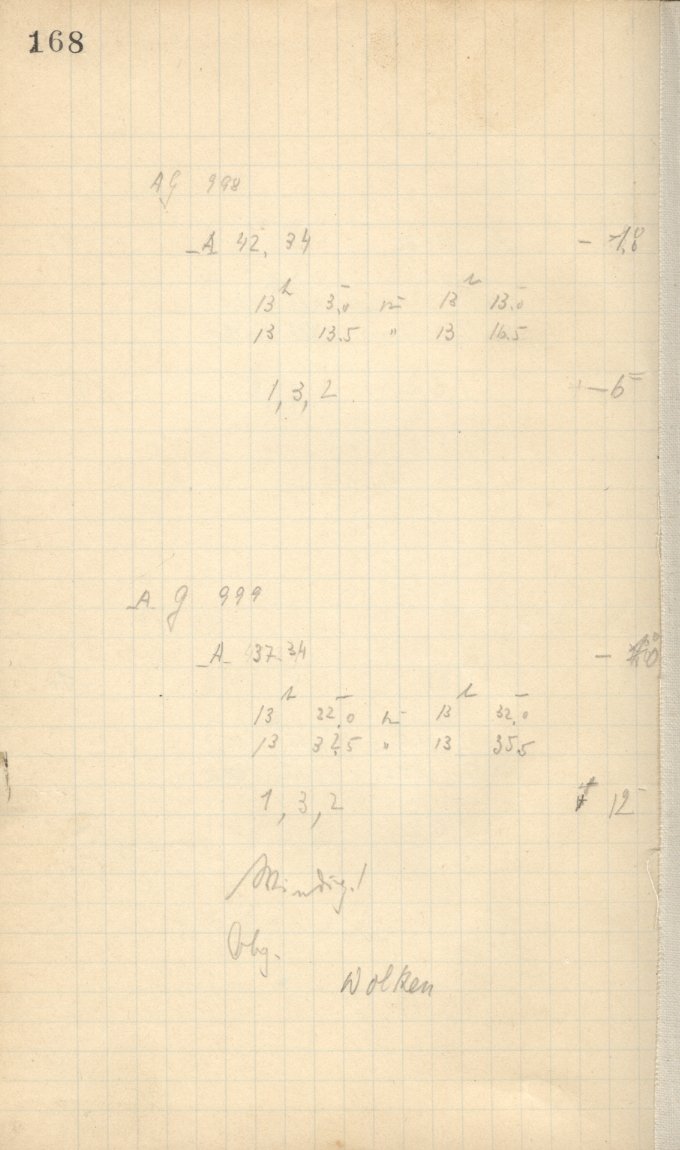 168
AG 998
A 42, 34
13h 3,0 13h 13,0
13 13.5 " 13 16.5
1, 3, 2 — 6
A G 999
A 37 34
13h 22,0 13h 32,0
13 32,5 " 13 35,5
1, 3, 2 12
Windig!
Wolken